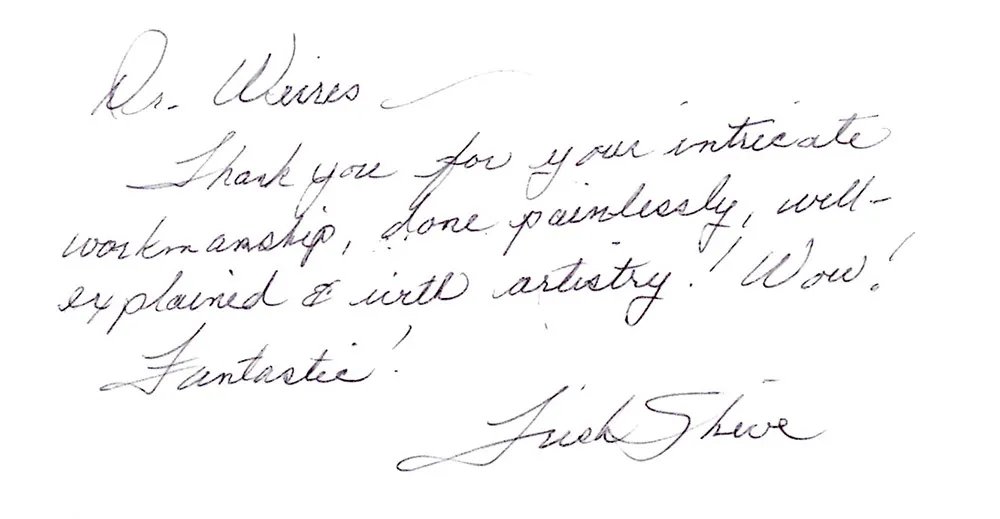 Dr. Weires
Thank you for your intricate
workmanship, done painlessly, well-
explained & with artistry! Wow!
Fantastic!
Trish Shive